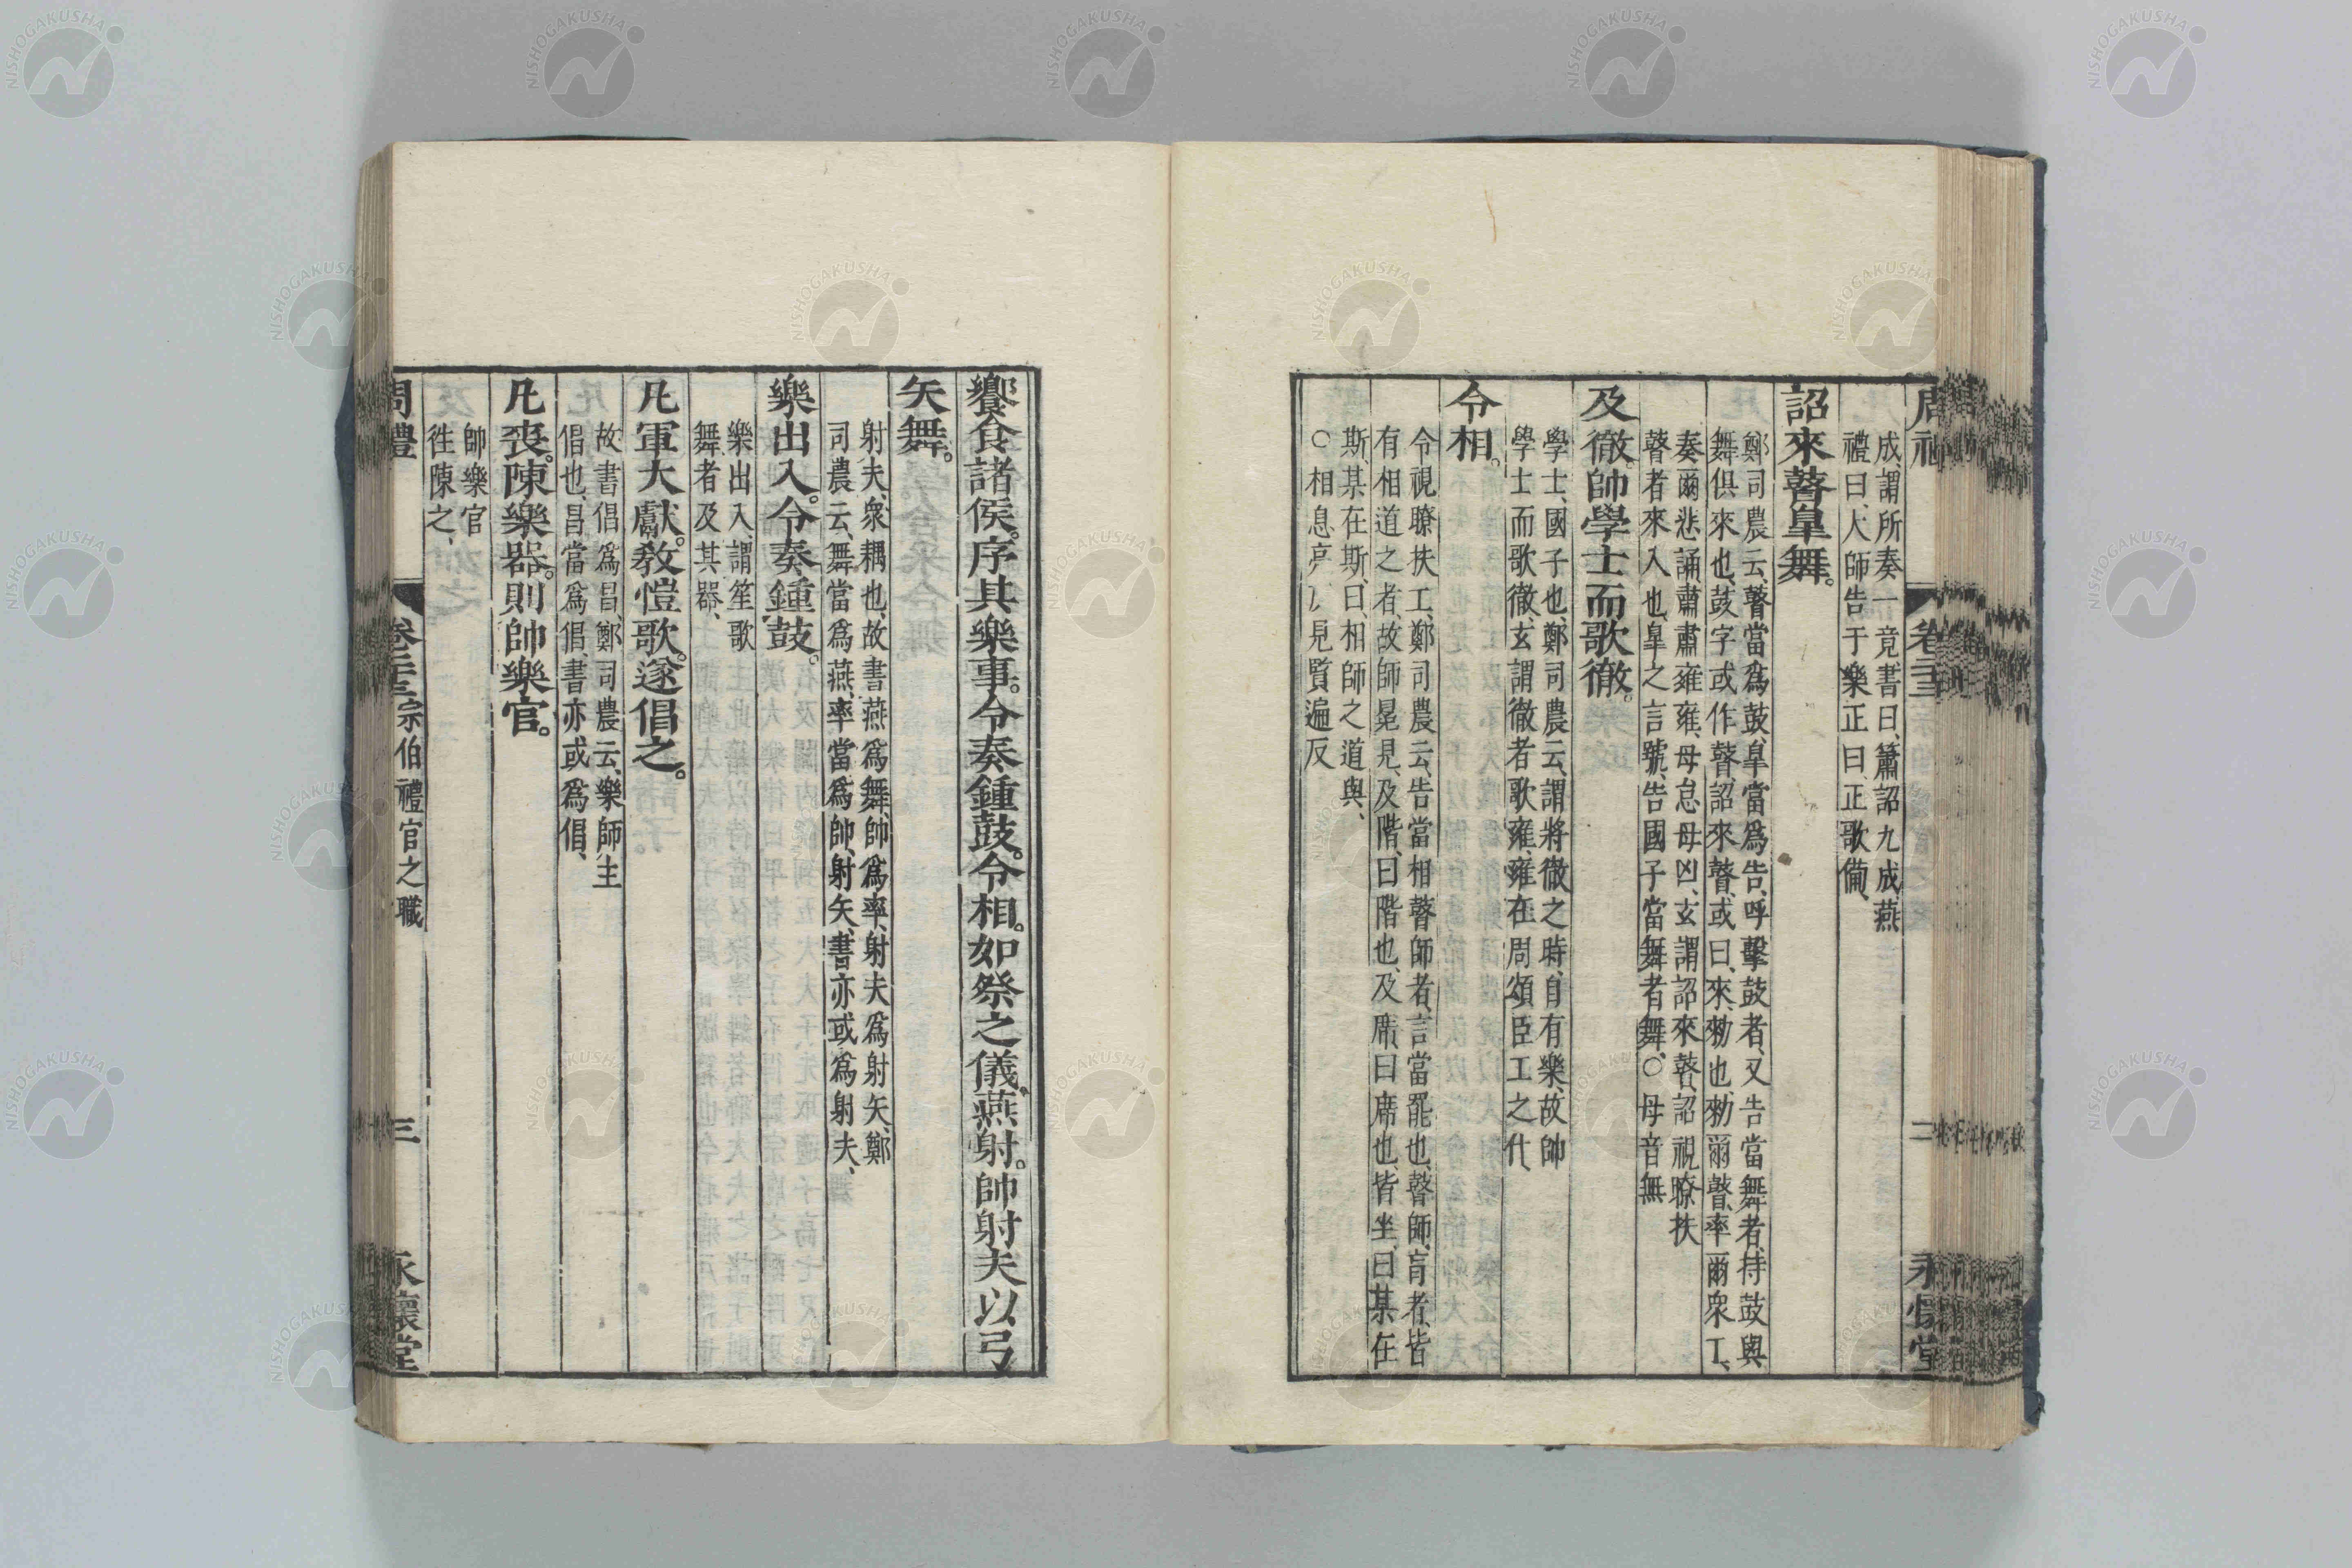 周禮
卷二十三
二
永懷堂
成、謂所奏一竟、書曰、簫韶九成、燕
禮曰、大師告于樂正曰、正歌備、
詔來瞽皐舞。
鄭司農云、瞽當爲鼓、皐當爲告、呼擊鼓者、又告當舞者、持鼓與
舞俱來也、鼓字或作瞽、詔來瞽、或曰、來、勑也、勑爾瞽、率爾衆工、
奏爾悲誦、肅肅雍雍、毋怠毋凶、玄謂詔來瞽、詔視瞭扶
瞽者來入也、皐之言號、告國子當舞者舞、○毋音無
及徹。帥學士而歌徹。
學士、國子也、鄭司農云、謂將徹之時、自有樂、故帥
學士而歌徹、玄謂徹者歌雍、雍在周頌臣工之什、
令相。
令視瞭扶工、鄭司農云、告當相瞽師者、言當罷也、瞽師、盲者、皆
有相道之者、故師冕見、及階、曰階也、及席、曰席也、皆坐、曰某在
斯、某在斯、曰、相師之道與、
○相息亮 見賢遍反
饗食諸侯。序其樂事。令奏鍾鼓。令相。如祭之儀、燕射。帥射夫以弓
矢舞。
射夫、衆耦也、故書燕爲舞、帥爲率、射夫爲射矢、鄭
司農云、舞當爲燕、率當爲帥、射矢、書亦或爲射夫、
樂出入。令奏鍾鼓。
樂出入、謂笙歌
舞者及其器、
凡軍大獻。教愷歌。遂倡之。
故書倡爲昌、鄭司農云、樂師主
倡也、昌當爲倡、書亦或爲倡、
凡喪。陳樂器。則帥樂官。
帥樂官
徃陳之、
周禮
卷二十三 宗伯禮官之職
三
永懷堂